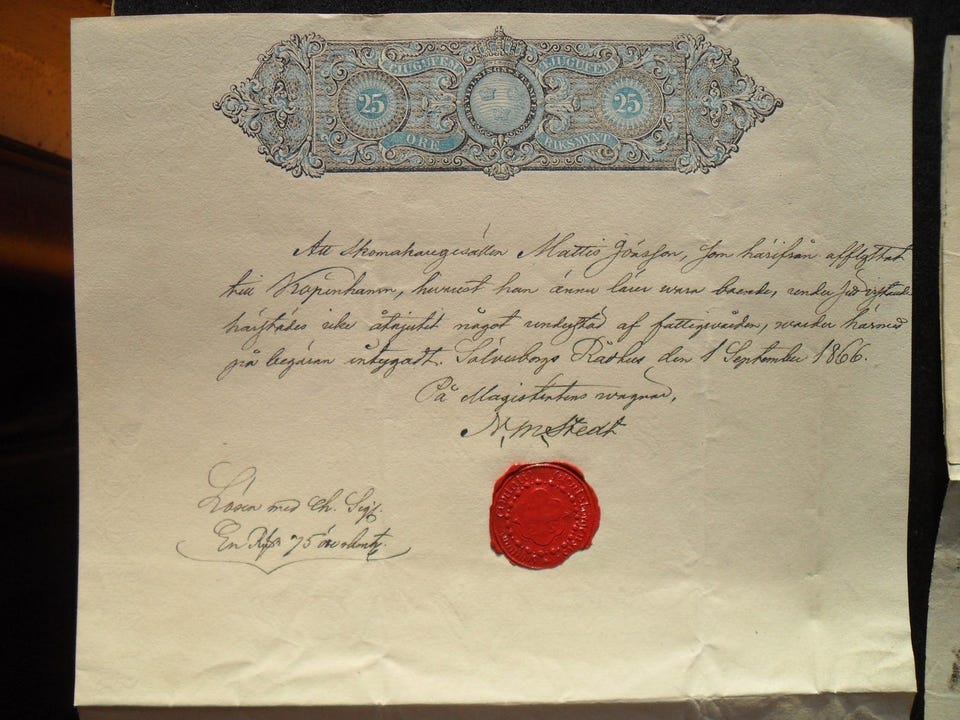 TJUGUFEM TJUGUFEM
25 25
ÖRE RIKSMYNT
Att Skomakaregesällen Mattis Jönsson, som härifrån afflyttat
till Köpenhamn, hwarest han ännu lärer wara boende, under sin wistande
härstädes icke åtnjutit något understöd af fattigvården, warder härmed
på begäran intygadt. Sölvesborgs Rådhus den 1 September 1866.
På Magistratens wägnar,
N. M. Stedt
Lösen med Ch. Sig.
En Rdr 75 öre rmt.